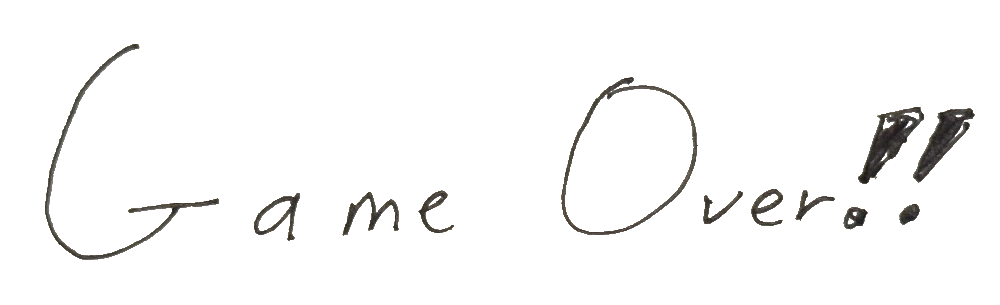 Game Over!!